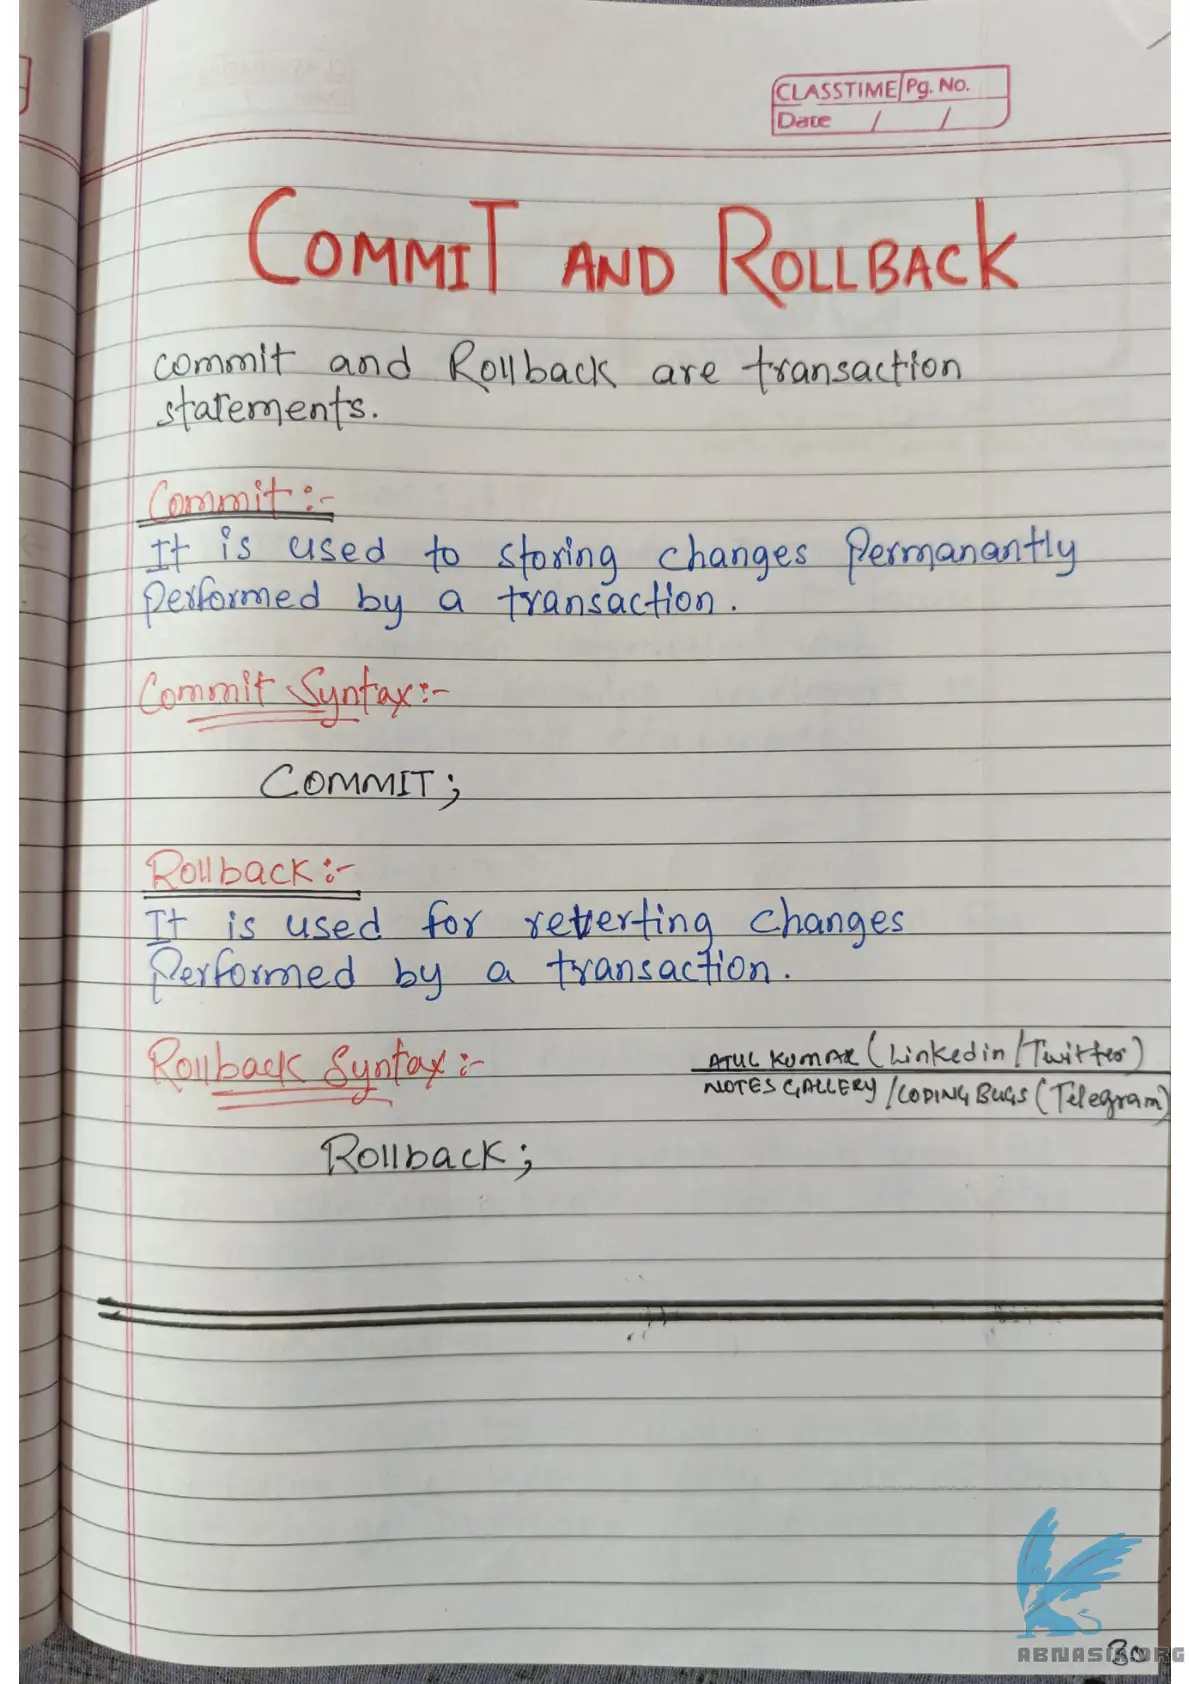 CLASSTIME Pg. No.
Date / /
COMMIT AND ROLLBACK
commit and Rollback are transaction
statements.
Commit :-
It is used to storing changes Permanantly
Performed by a transaction.
Commit Syntax:-
COMMIT;
Rollback :-
It is used for reverting changes
Performed by a transaction.
Rollback Syntax :-
ATUL KUMAR (Linkedin / Twitter)
NOTES GALLERY / CODING BUGS (Telegram)
Rollback;
30
ABNASIA.ORG